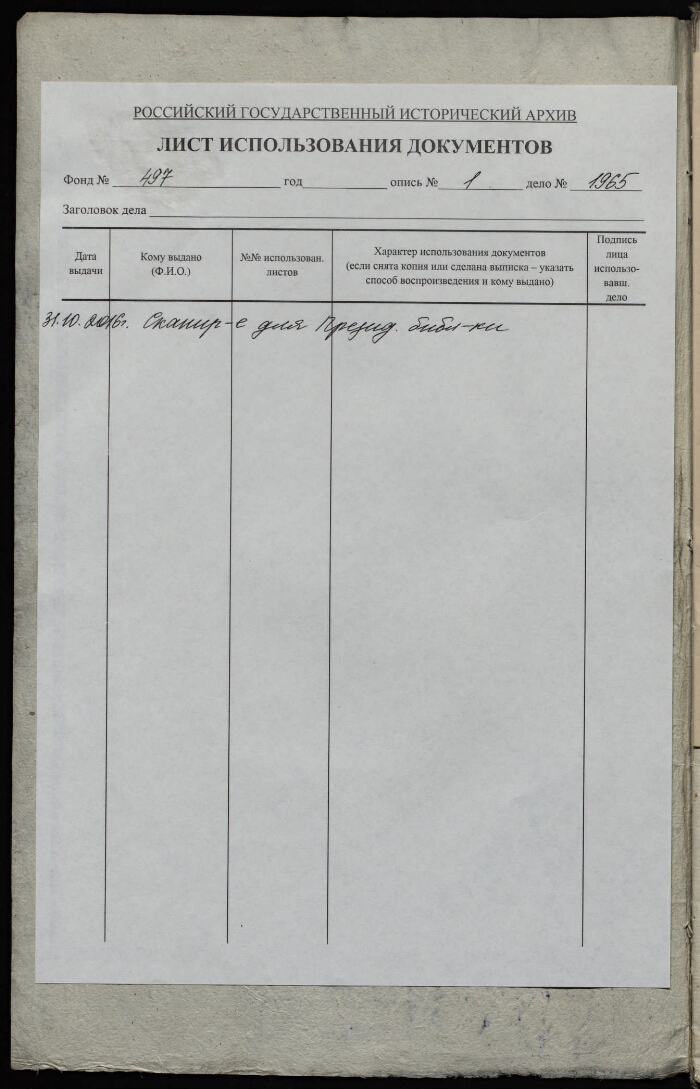 РОССИЙСКИЙ ГОСУДАРСТВЕННЫЙ ИСТОРИЧЕСКИЙ АРХИВ
ЛИСТ ИСПОЛЬЗОВАНИЯ ДОКУМЕНТОВ
Фонд № 497 год опись № 1 дело № 1965
Заголовок дела
Дата выдачи
Кому выдано (Ф.И.О.)
№№ использован. листов
Характер использования документов
(если снята копия или сделана выписка – указать
способ воспроизведения и кому выдано)
Подпись
лица
использо-
вавш.
дело
31.10.2016г. Сканир-е для Презид. библ-ки